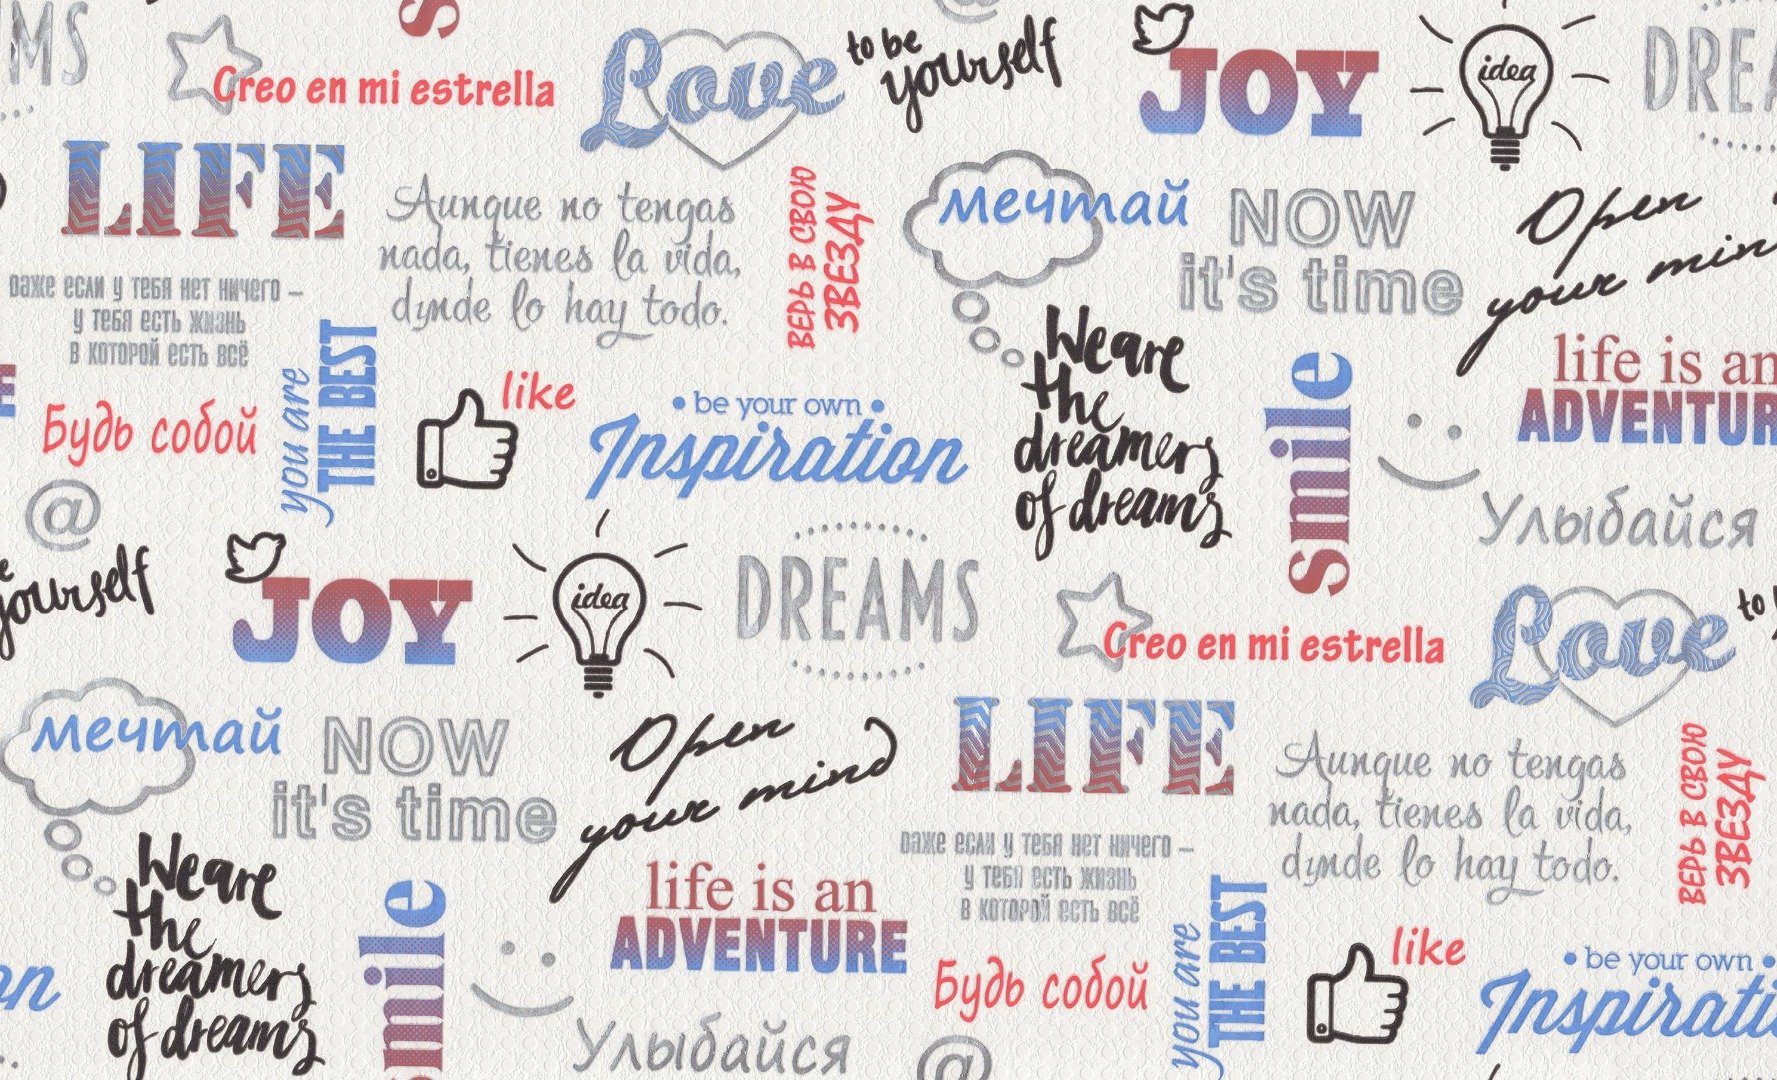 MS
s
Creo en mi estrella
Love
to be
yourself
JOY
idea
DREA
LIFE
Aunque no tengas
nada, tienes la vida,
dynde lo hay todo.
ВЕРЬ В СВОЮ
ЗВЕЗДУ
мечтай
NOW
it's time
Open
your min
даже если у тебя нет ничего –
у тебя есть жизнь
в которой есть всё
you are
THE BEST
like
• be your own •
Inspiration
We are
the
dreamers
of dreams
smile
life is an
ADVENTUR
E
Будь собой
@
Улыбайся
yourself
JOY
idea
DREAMS
Creo en mi estrella
Love
to
мечтай
NOW
it's time
Open
your mind
LIFE
Aunque no tengas
nada, tienes la vida,
dynde lo hay todo.
ВЕРЬ В СВОЮ
ЗВЕЗДУ
We are
the
dreamers
of dreams
smile
life is an
ADVENTURE
даже если у тебя нет ничего –
у тебя есть жизнь
в которой есть всё
Будь собой
you are
THE BEST
like
• be your own •
Inspirati
on
Улыбайся
@